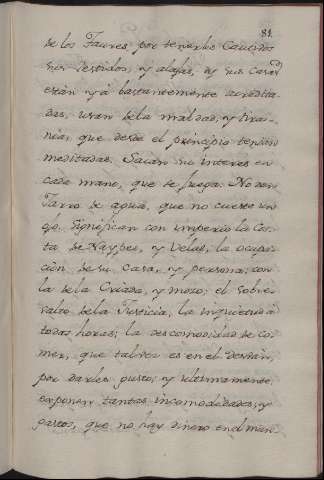 81.
de los Taures, por tenerlos Cautivos
sus vestidos, y alajas, y sus casas
están yá bastantemente acredita-
das, usan de la maldad, y tira-
nia, que desde el principio tenian
meditadas. Sacan su interes en
cada mano, que se juega. No dan
Jarro de agua, que no cueste un
ojo. Significan con imperio la Cos-
ta de Naypes, y Velas, la ocupa-
cion de su Casa, y persona; con
la de la Criada, y mozo; el sobre-
salto de la Justicia, la inquietud à
todas horas; la descomodidad de co-
mer, que tal vez es en el desván,
por darles gusto; y ultimamente,
exponen tantas incomodidades, y
gastos, que no hay dinero en el mun-